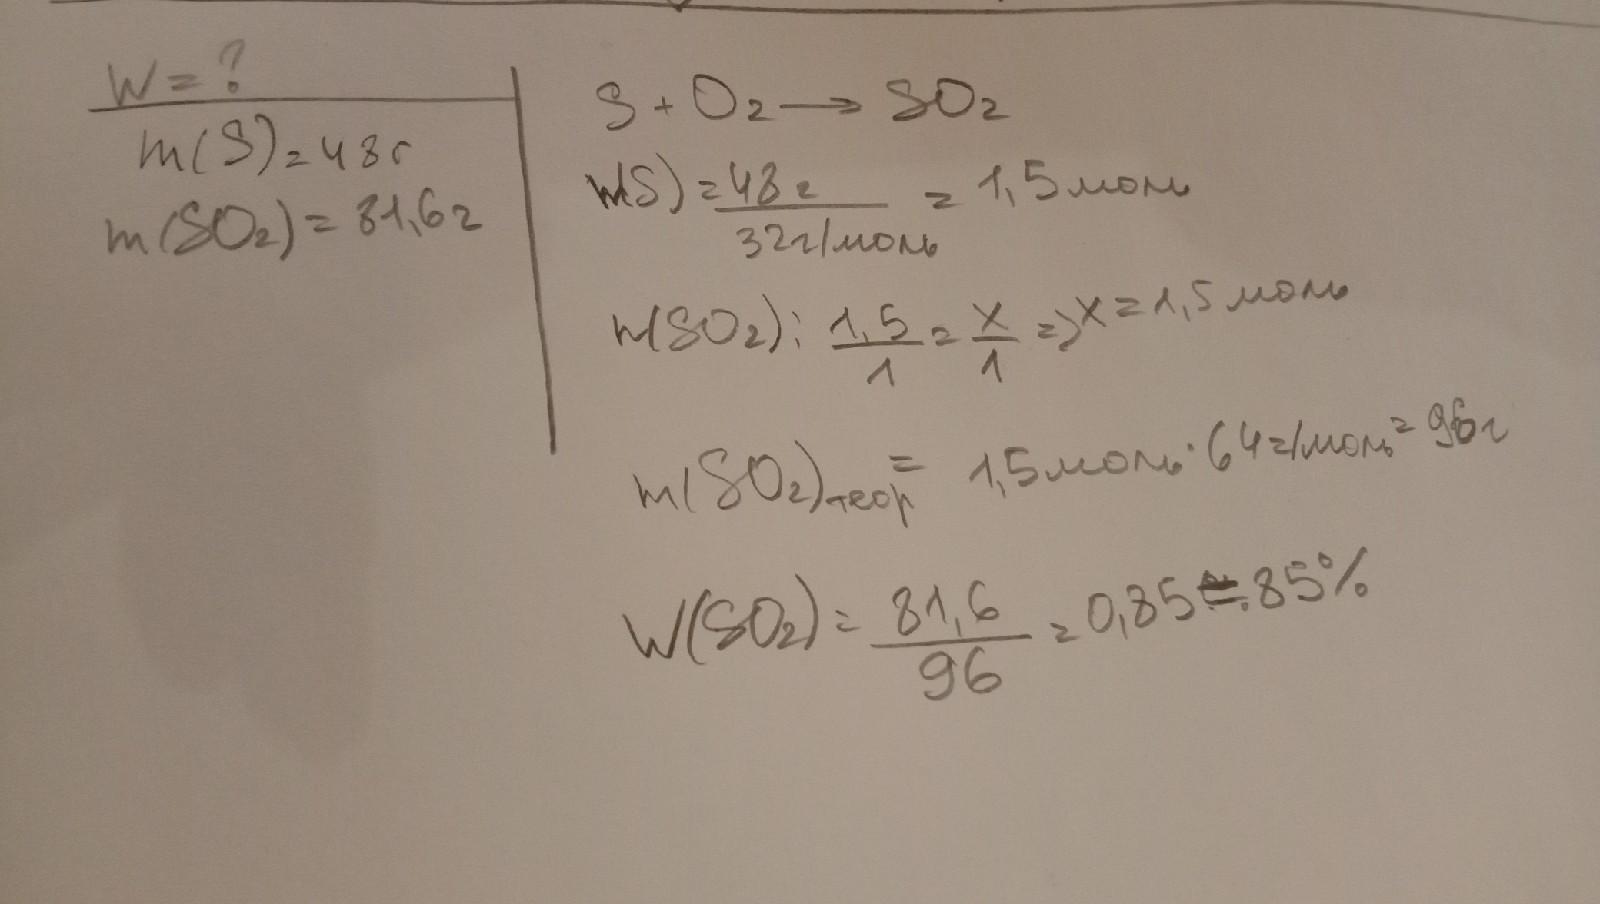 W = ?
m(S) = 48 г
m(SO₂) = 81,6 г
S + O₂ → SO₂
n(S) = 48 г / 32 г/моль = 1,5 моль
n(SO₂): 1,5 / 1 = x / 1 => x = 1,5 моль
m(SO₂)теор = 1,5 моль · 64 г/моль = 96 г
W(SO₂) = 81,6 / 96 = 0,85 = 85%